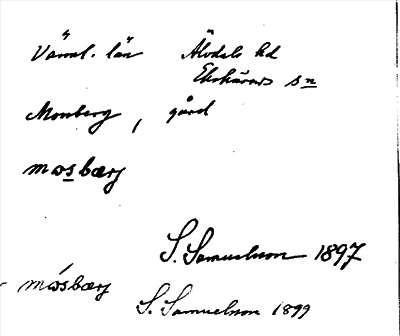 Värml. län Älvdals hd
Ekshärads sn
Mosberg, gård
mosbærj
S. Samuelson 1897
mósbærj
S. Samuelson 1899